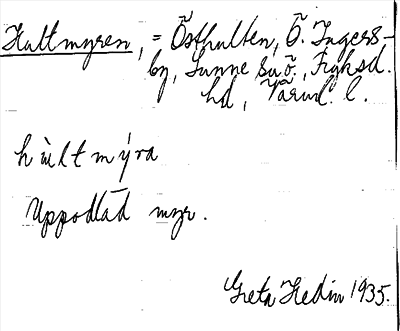 Hultmyren, = Östhulten, Ö. Ingers-
by, Sunne sn Ö., Fryksd.
hd, Värml. l.
hùltmýra
Uppodlad myr.
Greta Hedin 1935.